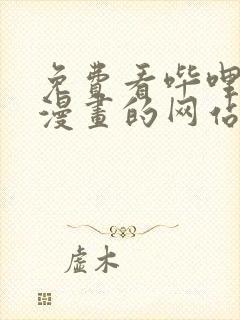 免费看哔哩
漫画的网站
虚木